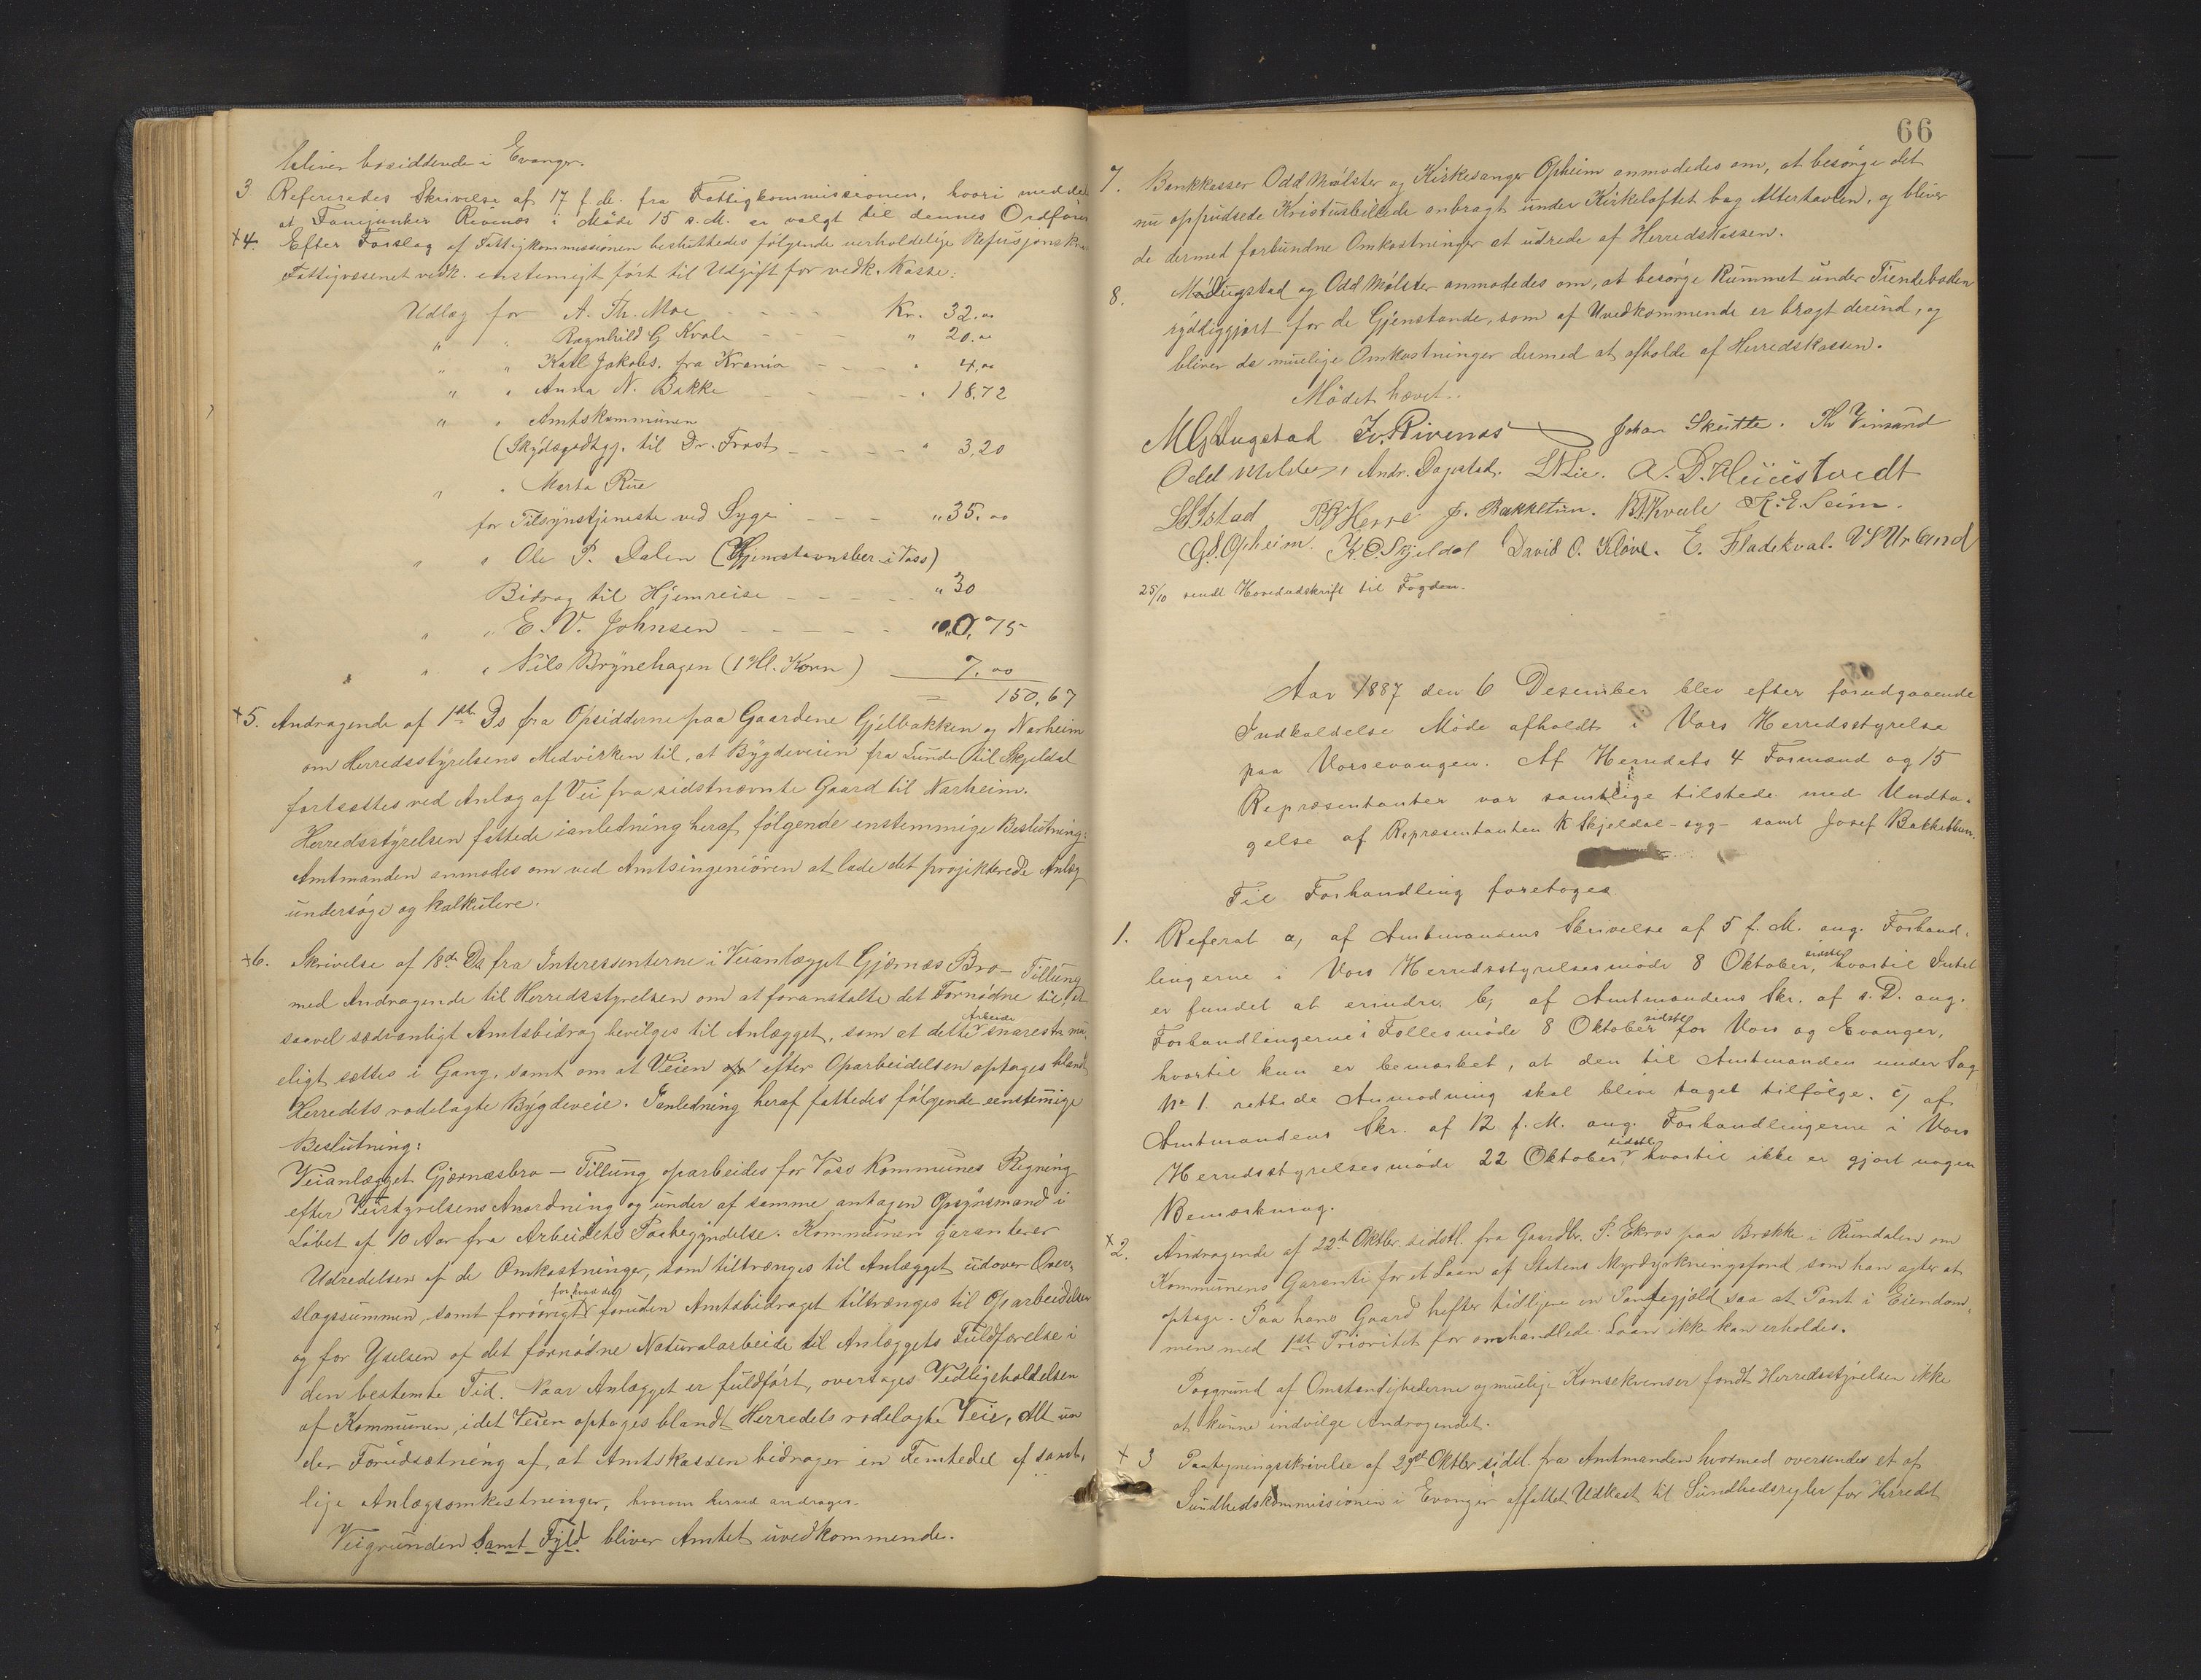 bliver bosiddende i Evanger.
3 Refereredes Skrivelse af 17 f. M. fra Fattigkommissionen, hvori meddeles
at Fanejunker Rivenes i Møde 15 s. M. er valgt til dennes Ordfører
+4. Efter Forslag af Fattigkommissionen besluttedes følgende uerholdelige Refusjonskrav
Fattigvæsenet vedk. enstemigt ført til Udgift for vedk. Kasse:
Udlæg for A. Th. Moe - - - - Kr. 32.00
" " Ragnhild G Kvale - - " 20.00
" " Karl Jakobs. fra Krania - - - " 4.00
" " Anna N. Bakke - - - - " 18,72
" " Amtskommunen
(Skydsgodtgj. til Dr. Frost - - - - " 3,20
" " Marta Rue
for Tilsynstjeneste ved Syge - - - " 35.00
" " Ole P. Dalen (Hjemstavnsber. i Voss)
Bidrag til Hjemreise - - - - - " 30
" " E. V. Johnsen - - - - - " 0,75
" " Nils Brynehagen (1 Hl. Korn) 7.00
150,67
+5. Andragende af 1ste Ds fra Opsidderne paa Gaardene Gjelbakken og Narheim
om Herredsstyrelsens Medvirken til, at Bygdeveien fra Lunde til Skjeldal
fortsættes ved Anlæg af Vei fra sidstnævnte Gaard til Narheim.
Herredsstyrelsen fattede i anledning heraf følgende enstemmige Beslutning:
Amtmanden anmodes om ved Amtsingeniøren at lade det projekterede Anlæg
undersøge og kalkulere.
+6. Skrivelse af 18de Ds fra Interessenterne i Veianlægget Gjernæs Bro - Tillung
med Andragende til Herredsstyrelsen om at foranstalte det Fornødne til at
saavel sædvanligt Amtsbidrag bevilges til Anlægget, som at dette Arbeide snarest mu-
eligt sættes i Gang, samt om at Veien efter Oparbeidelsen optages blandt
Herredets rodelagte Bygdeveie. I anledning heraf fattedes følgende eenstemige
Beslutning:
Veianlægget Gjernæsbro - Tillung oparbeides for Voss Kommunes Regning
efter Veistyrelsens Anordning og under af samme antagen Opsynsmand i
Løbet af 10 Aar fra Arbeidets Paabegyndelse. Kommunen garanterer
Udredelsen af de Omkostninger, som tiltrænges til Anlægget udover Over-
slagssummen, samt forøvrigt for hvad der foruden Amtsbidraget tiltrænges til Oparbeidelsen
og for Ydelsen af det fornødne Naturalarbeide til Anlæggets Fuldførelse i
den bestemte Tid. Naar Anlægget er fuldført, overtages Vedligeholdelsen
af Kommunen, idet Veien optages blandt Herredets rodelagte Veie, Alt un
der Forudsætning af, at Amtskassen bidrager en Femtedel af samt-
lige Anlægsomkostninger, hvorom herved andrages.
Veigrunden samt Fyld bliver Amtet uvedkommende.
66
7. Bankkasser Odd Mølster og Kirkesanger Opheim anmodedes om, at besørge det
nu oppudsede Kristusbillede anbragt under Kirkeloftet bag Altertavlen, og bliver
de dermed forbundne Omkostninger at udrede af Herredskassen.
8. M. Lugstad og Odd Mølster anmodedes om, at besørge Rummet under Tiendeboden
ryddiggjort for de Gjenstande, som af Uvedkommende er bragt derind, og
bliver de muelige Omkostninger dermed at afholde af Herredskassen.
Mødet hævet.
MGLugstad Iv. Rivenes Johan Skutle. Th Vinsand
Odd Mølster, Andr. Dagestad. LNLie.
P. Herre J. Bakketun. K. E. Seim.
G. S. Opheim. K. O. Skjeldal David O. Kløve. E. Fladekval.
25/10 sendt Hovedudskrift til Fogden.
Aar 1887 den 6 Desember blev efter forudgaaende
Indkaldelse Møde afholdt i Vors Herredsstyrelse
paa Vorsevangen. Af Herredets 4 Formænd og 15
Repræsentanter var samtlige tilstede med Undta-
gelse af Repræsentanten K Skjeldal - syg - samt Josef Bakkethun.
Til Forhandling foretoges
1. Referat a, af Amtmandens Skrivelse af 5 f. M. ang. Forhand-
lingerne i Vors Herredsstyrelsesmøde 8 Oktober sidstl., hvortil Intet
er fundet at erindre. b, af Amtmandens Skr. af s. D. ang.
Forhandlingerne i Fællesmøde 8 Oktober sidstl. for Vors og Evanger,
hvortil kun er bemærket, at den til Amtmanden under Sag
No 1. rettede Anmodning skal blive taget tilfølge. c, af
Amtmandens Skr. af 12 f. M. ang. Forhandlingerne i Vors
Herredsstyrelsesmøde 22 Oktober sidstl., hvortil ikke er gjort nogen
Bemærkning.
+2. Andragende af 22de Oktbr. sidstl. fra Gaardbr. P. Ekroe paa Brække i Rundalen om
Kommunens Garanti for et Laan af Statens Myrdyrkningsfond som han agter at
optage. Paa hans Gaard hefter tidligere en Pantegjæld saa at Pant i Eiendom-
men med 1ste Prioritet for omhandlede Laan ikke kan erholdes.
Paagrund af Omstændighederne og muelige Konsekvenser fandt Herredsstyrelsen ikke
at kunne indvilge Andragendet.
+ 3 Paategningsskrivelse af 29de Oktbr sidstl. fra Amtmanden hvormed oversendes et af
Sundhedskommissionen i Evanger affattet Udkast til Sundhedsregler for Herredet